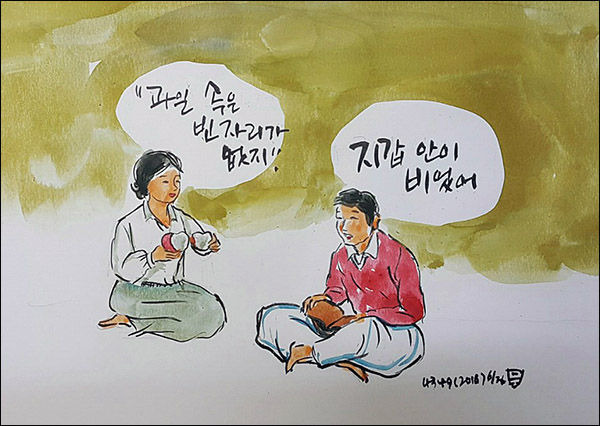 "과일 속은
빈자리가
없지"
지갑 안이
비었어
(2018)